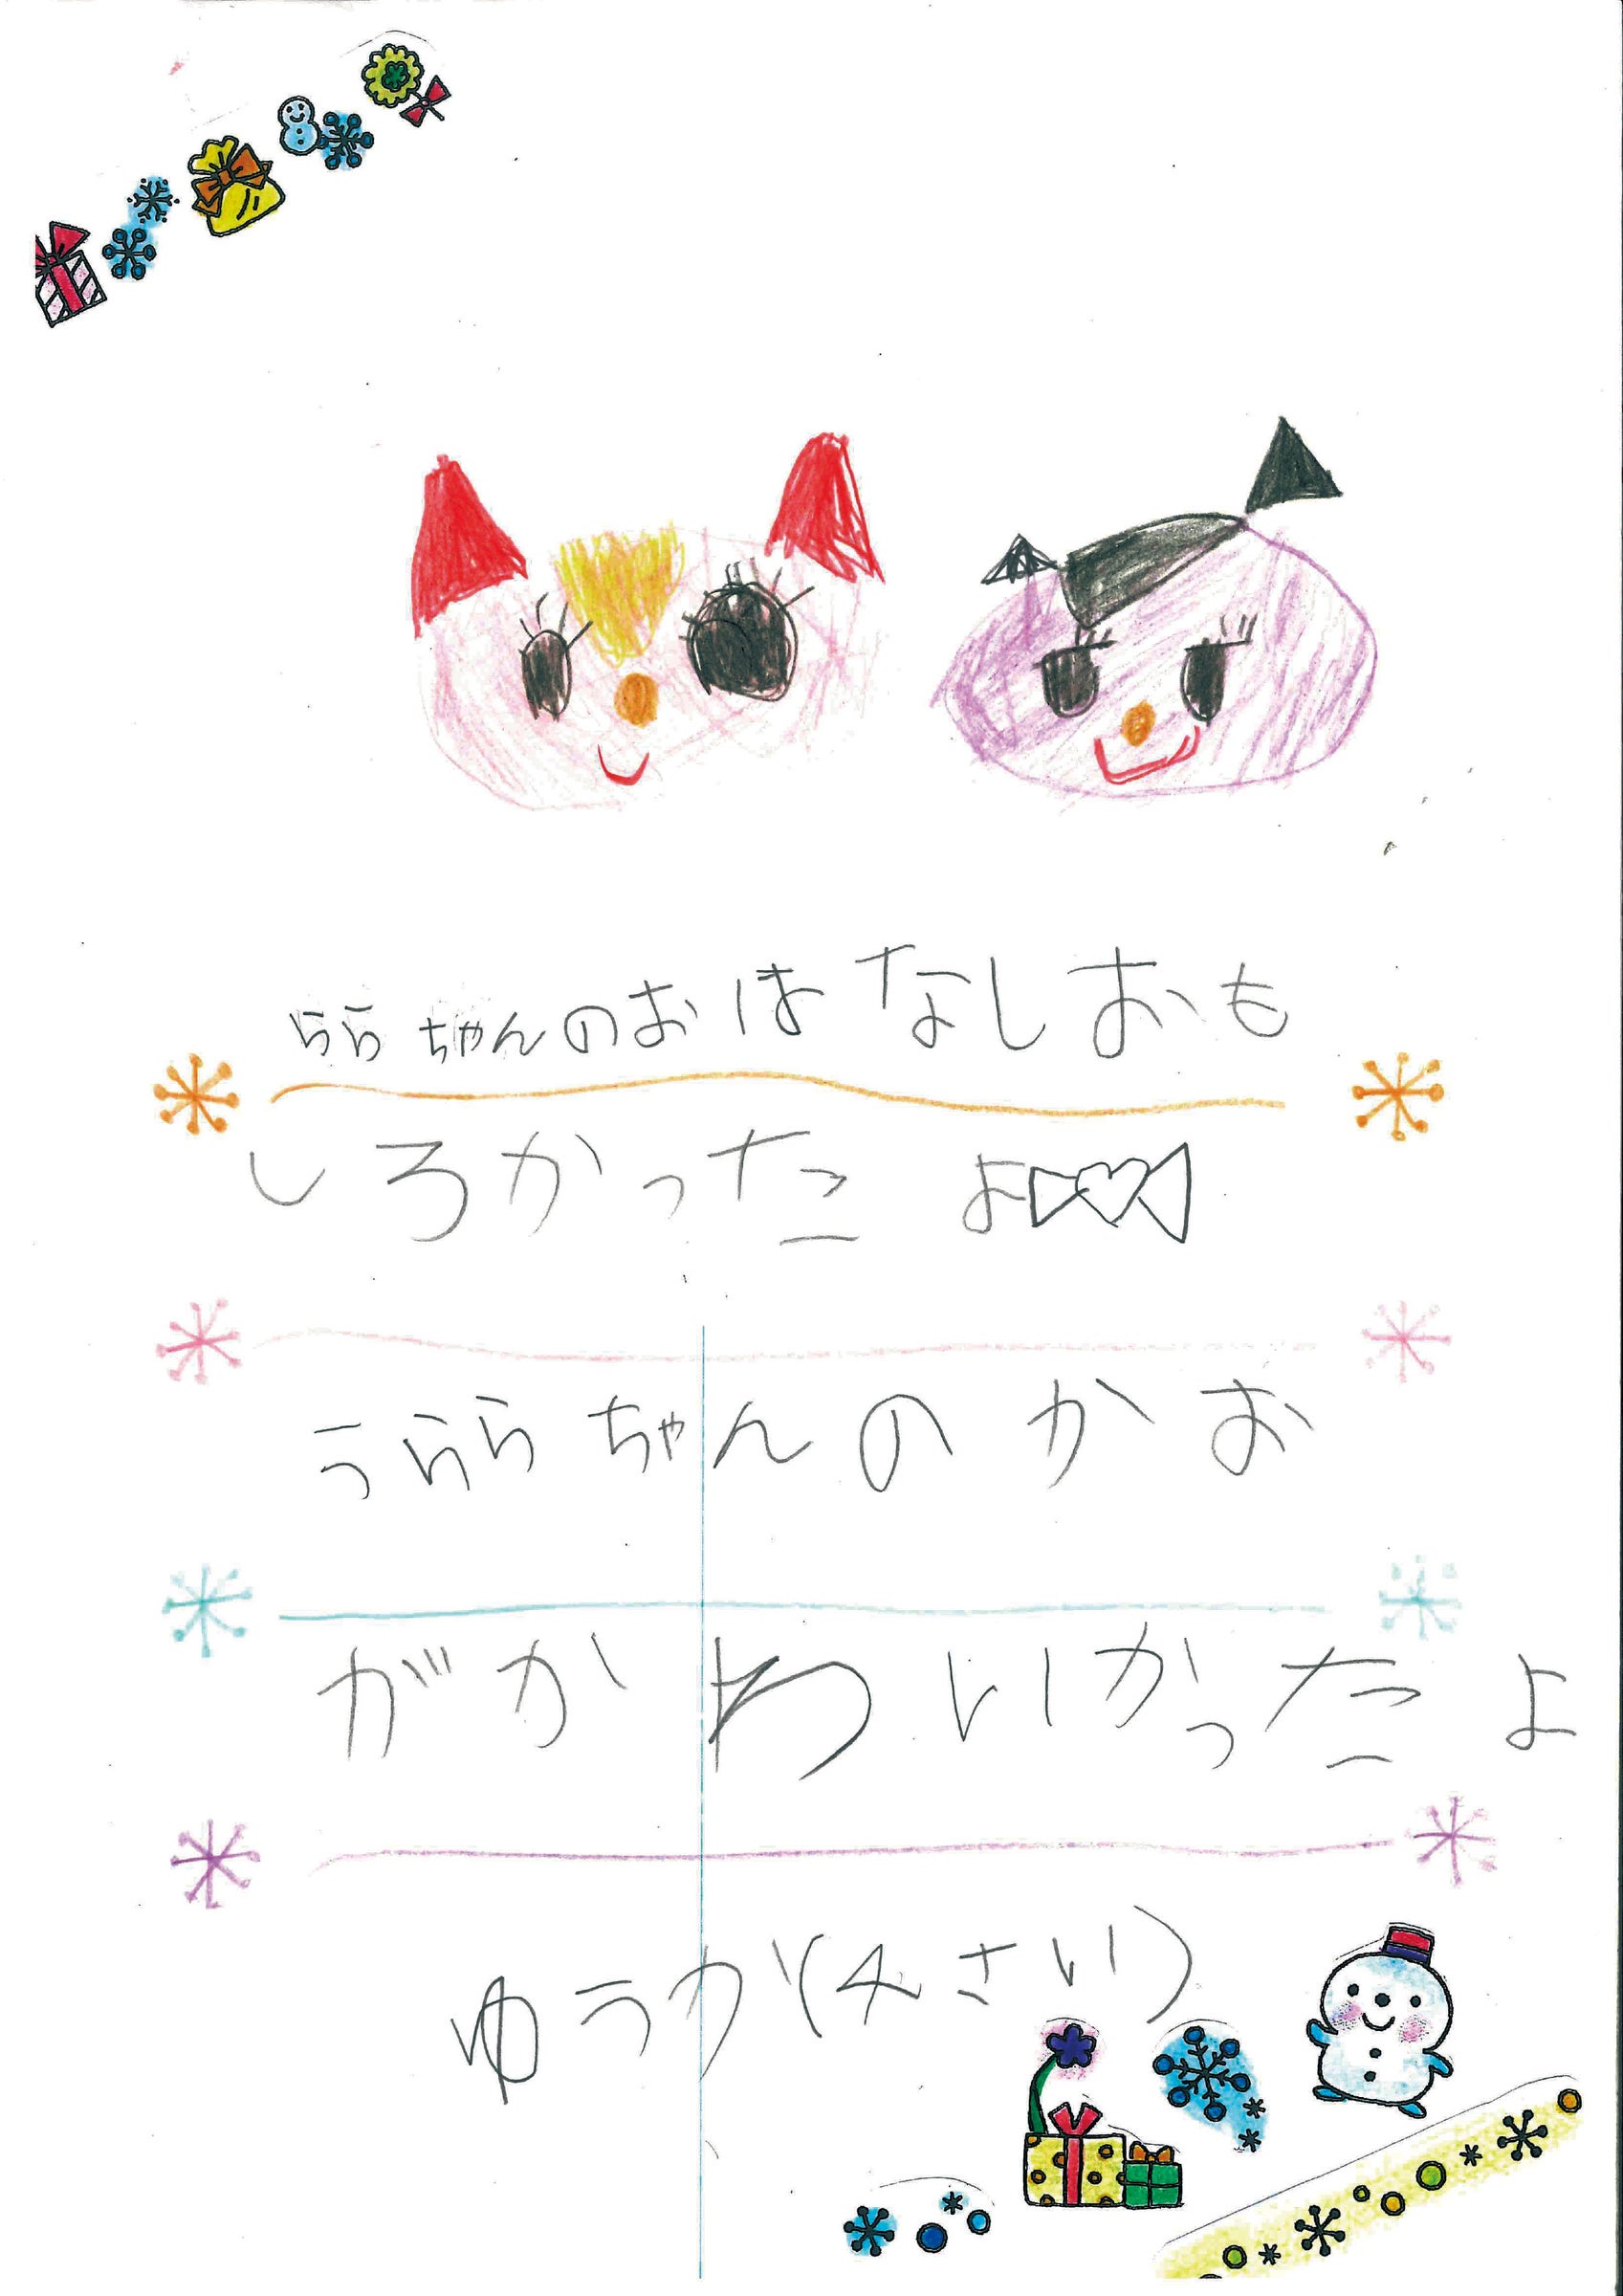 ららちゃんのおはなしおも
しろかったよ
うららちゃんのかお
がかわいかったよ
ゆうか(4さい)